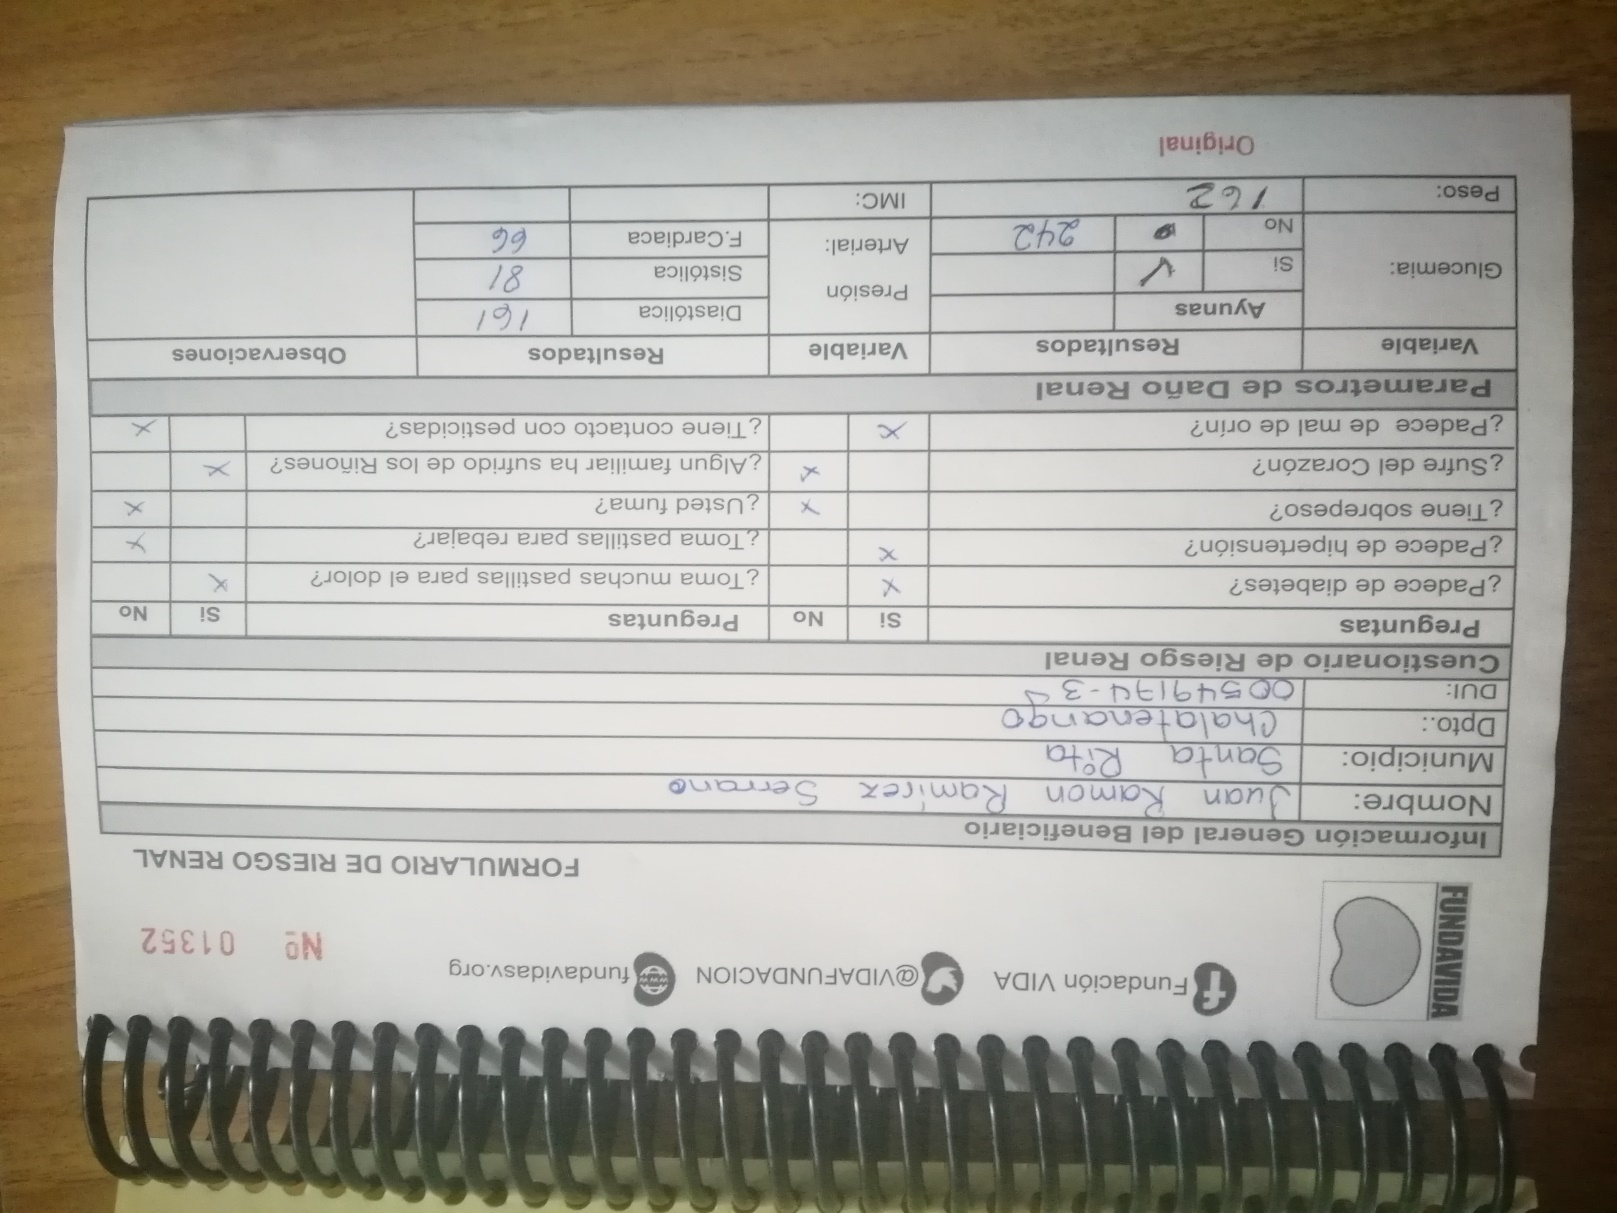 FUNDAVIDA
Fundación VIDA @VIDAFUNDACION fundavidasv.org
Nº 01352
FORMULARIO DE RIESGO RENAL
Información General del Beneficiario
Nombre: Juan Ramon Ramírez Serrano
Municipio: Santa Rita
Dpto.: Chalatenango
DUI: 00549174-3
Cuestionario de Riesgo Renal
Preguntas Si No Preguntas Si No
¿Padece de diabetes? X ¿Toma muchas pastillas para el dolor? X
¿Padece de hipertensión? X ¿Toma pastillas para rebajar? X
¿Tiene sobrepeso? X ¿Usted fuma? X
¿Sufre del Corazón? X ¿Algun familiar ha sufrido de los Riñones? X
¿Padece de mal de orín? X ¿Tiene contacto con pesticidas? X
Parametros de Daño Renal
Variable Resultados Variable Resultados Observaciones
Glucemia: Ayunas Presión Arterial: Diastólica 161
Si ✓ Sistólica 81
No 242 F.Cardiaca 66
Peso: 162 IMC:
Original